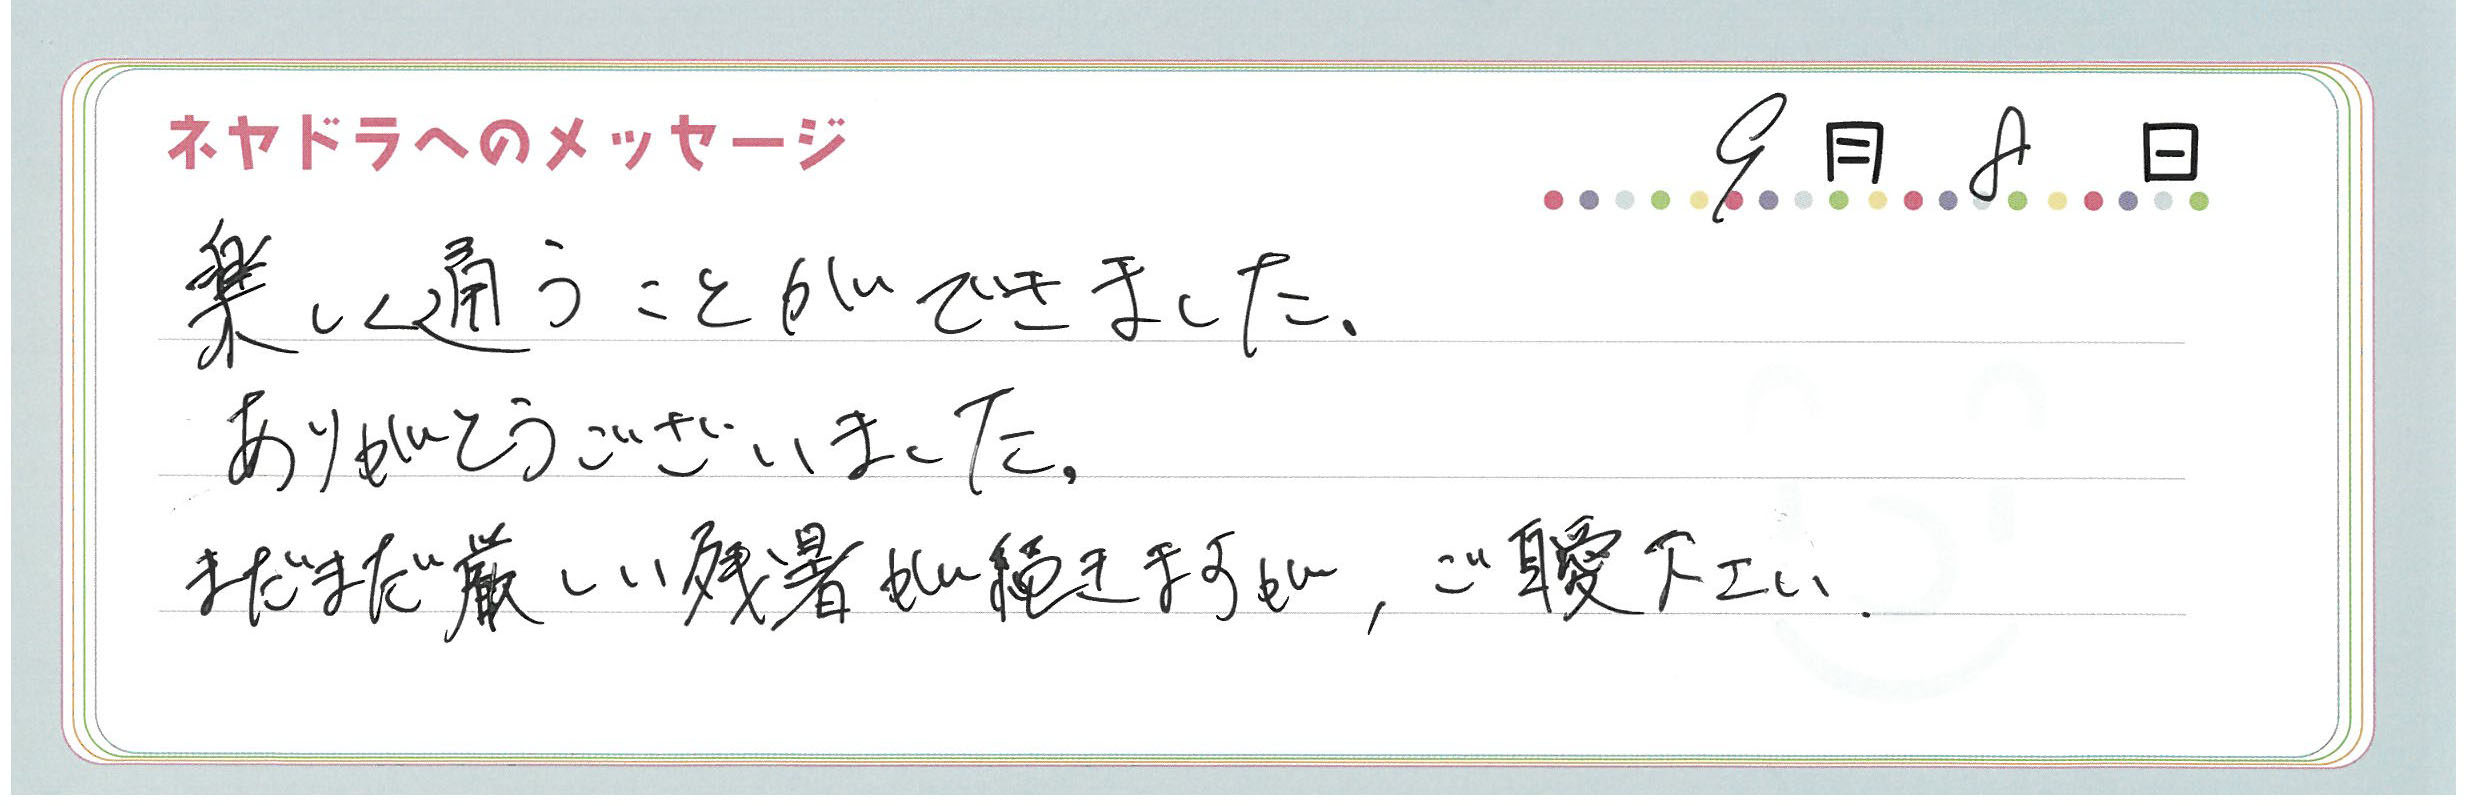 ネヤドラへのメッセージ
9月8日
楽しく通うことができました、
ありがとうございました。
まだまだ厳しい残暑が続きますが,ご自愛下さい.